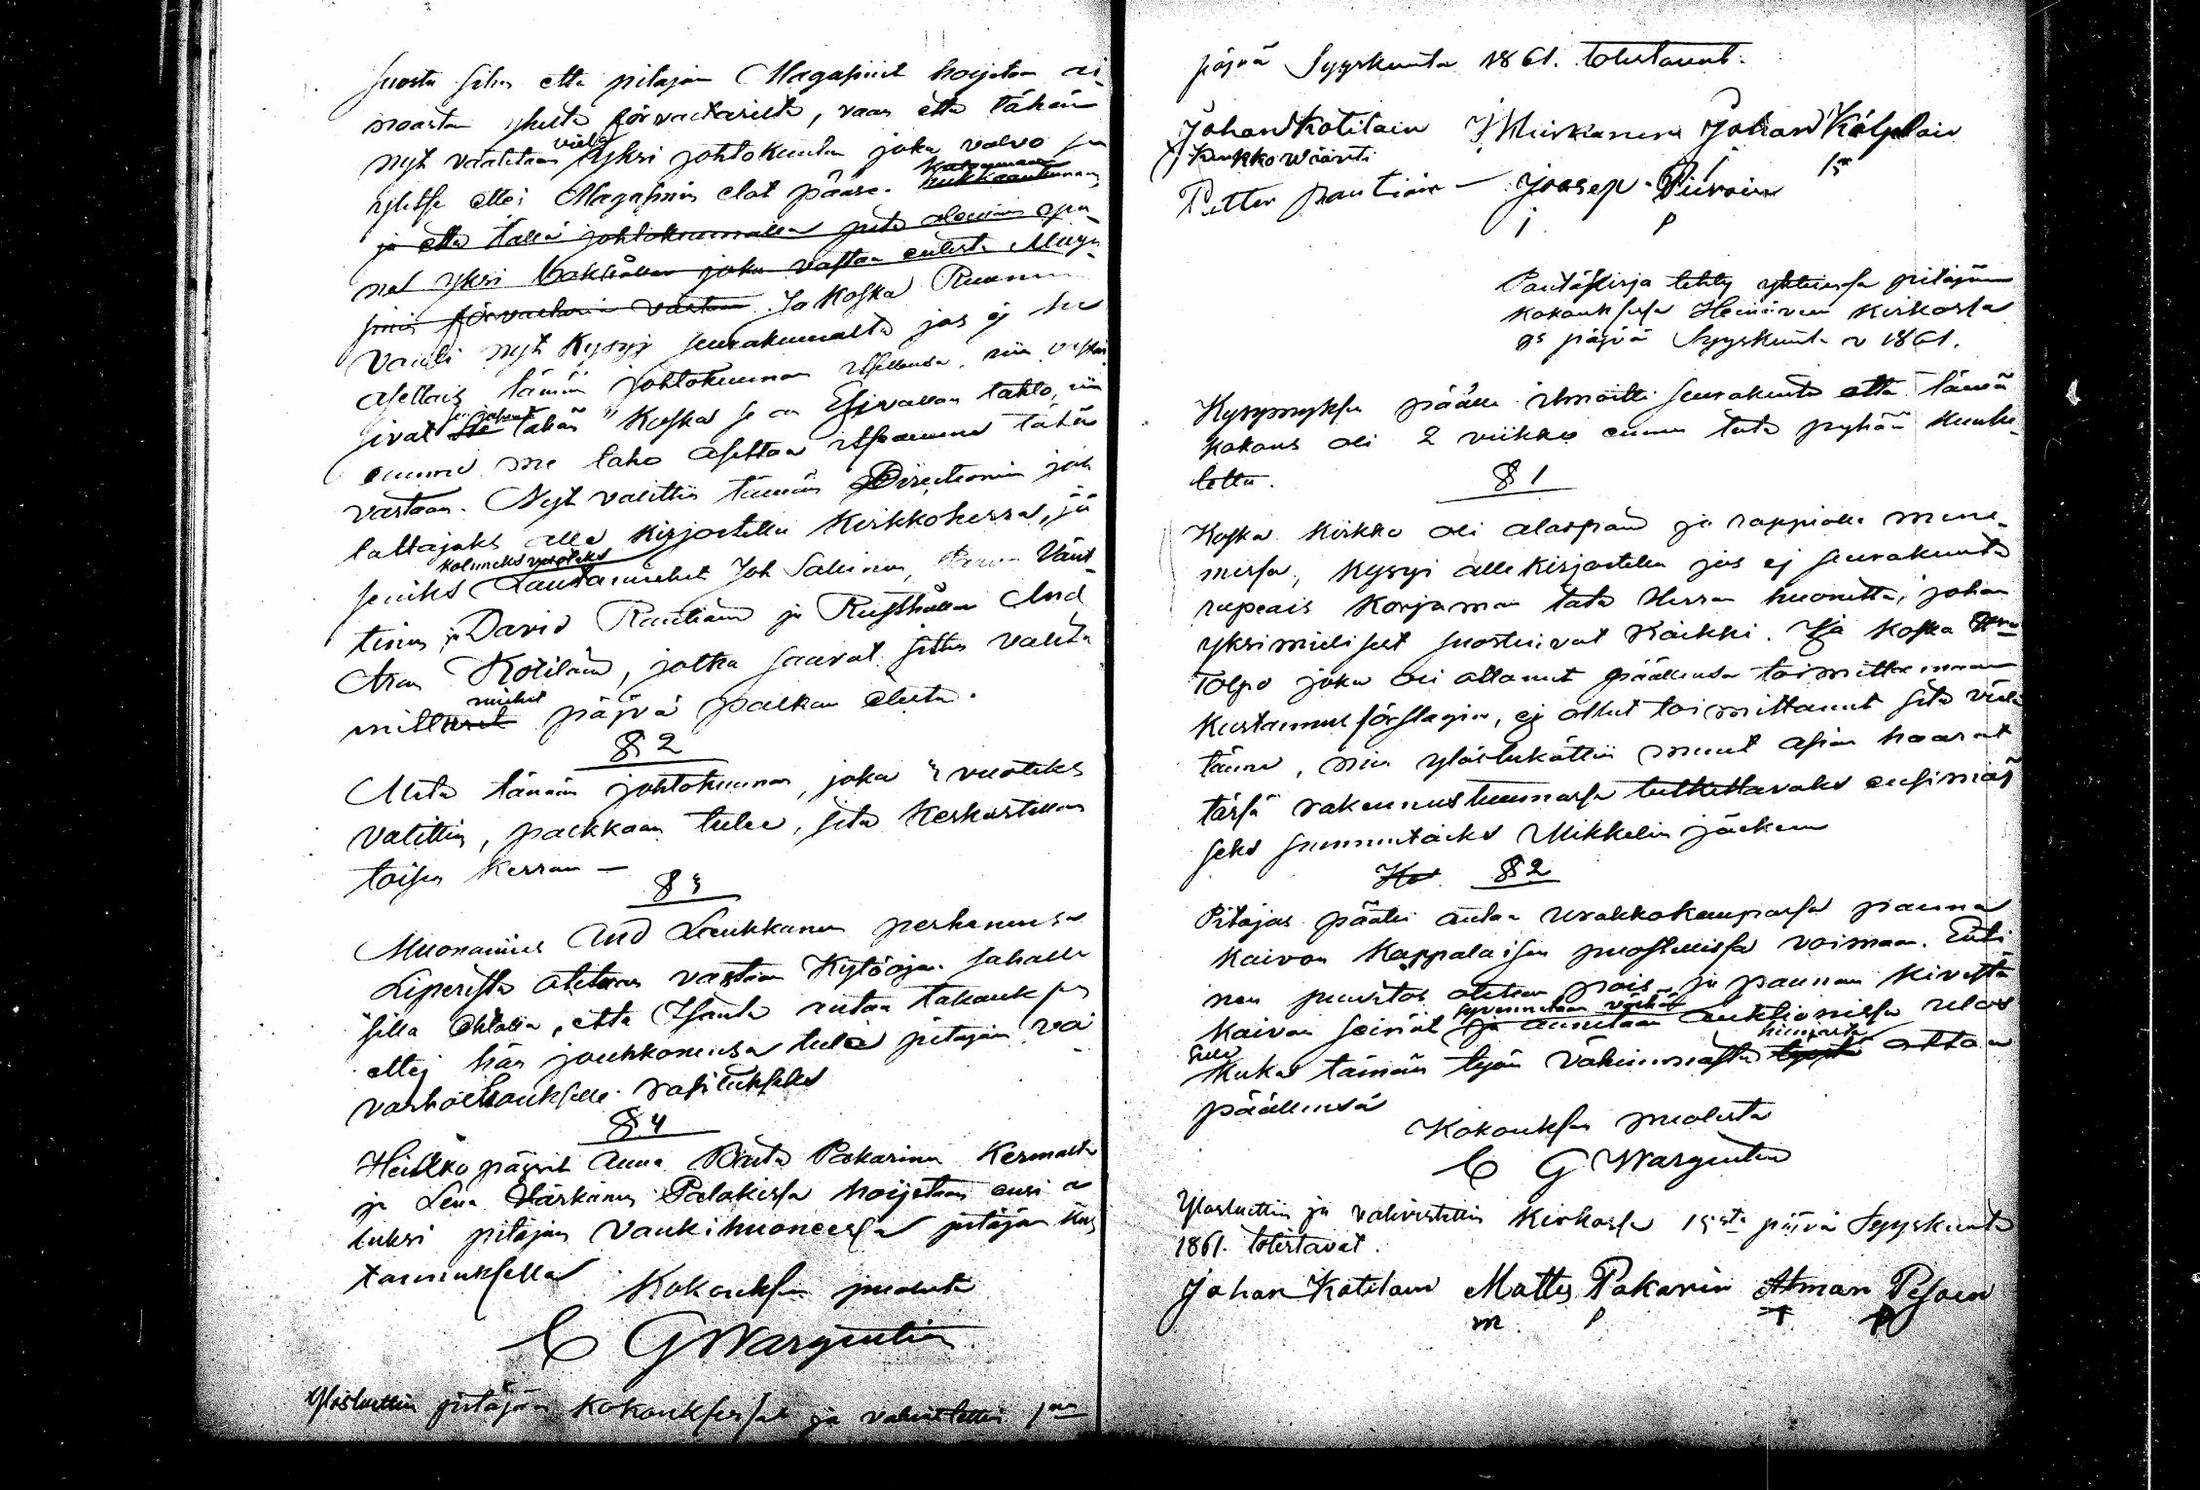 suostu siihen että pitäjän Magasinit hoijetan ai-
noastan yheltä förvaltarilta, vaan että tähän
nyt valitaan vielä yksi johtokunta joka valvo sen
ylitse ettei Magasinin elot pääse. hukkaantumaan
ja että tällä johtokunnalla pitä oleman apu-
na yksi joka vastaa eulosta Maga-
sinin förvaltaria vastaan. Ja koska Ruunun
Vouti nyt kysyi seurakunnalta jos ej he
asettais tämän johtokunnan itsellensä, niin vastai-
sivat tähän "koska se on Esivallan tahto, niin
emme me taho asettaa itseämme tätä
vastaan. Nyt valittiin tämän Directionin joh
lattajaks alle kirjoitettu Kirkkoherra, jä
kolmeks vuodeks
seniks Lautamiehet Joh Sallinen, Vänt-
tinen, ja David Rautiain ja Rusthållari And
Aron Kotilain, jotka saavat sitten valita
miehet
millaiset päjvä palkan eluta.
§ 2
Mitä tämän johtokunnan, joka 3 vuoteks
valittiin, palkkaan tulee, sitä keskustellaan
toisen kerran —
§ 3
Muonamies And Leukkunen perhenensä
Liperistä otetaan vastaan Kytöojan sahalle
sillä ehtolla, että Isäntä antaa takauksen
ettej hän joukkonensa tule pitäjän vai
vashoitouksella rasituksaks
§ 4
Heikkopäjset Anna Brita Pakarinen Kermalta
ja Lena Härkönen Palokista hoijetaan ensi a
luksi pitäjän Vankihuoneessa pitäjän kus
tannuksella
Kokouksen puolesta
C G Wargentin
Ylösluettiin pitäjän kokouksessa ja vahvistettiin 1:nen
päjvä Syyskuuta 1861. todistavat.
Johan Kotilain J Miirkanen Johan Kölpläin
Kirkko wäärti
Petter Rautiain — Joosep Piiroin
j p
Pöytäkirja tehty yhteisessä pitäjän
kokouksessa Heinäveen kirkossa
8s päjvä Syyskuuta v 1861.
Kysymyksen päälle ilmoitti seurakunta että tämä
kokous oli 2 viikko ennen tätä pyhää kuulu-
tettu.
§ 1
Koska kirkko oli alaspäin ja rappiolle mene-
mässä, kysyi allekirjoitettu jos ej seurakunta
rupeais korjaman tätä Herran huonetta, johon
yksimielisest suostuivat kaikki. Ja koska Herra
Tolpo joka oli ottanut päällensä toimittamaan
kustannus förslagin, ej ollut toimittanut sitä vielä
tänne, niin ylöslykättiin muut asian haarat
tässä rakennus tuumassa tutkittavaks ensimäi
seks sunnuntaiks Mikkelin jälkeen
§ 2
Pitäjäs päätti antaa urakkokaupassa panna
kaivon kappalaisen puostellissa voimaan. Enti
nen puustos otetaan pois, ja pannan kivestä
syvennetään vähän
kaivon seinät ja annetaan auktionilla ulos
Sille hinnasta
kuka tämän työn vähimmästä työstä ottaa
päällensä
Kokouksen puolesta
C G Wargentin
Ylösluettiin ja vahvistettiin kirkossa 15sta päivä Syyskuuta
1861. todistavat.
Johan Kotilain Mattes Pakarin Atman Pesoin
m p